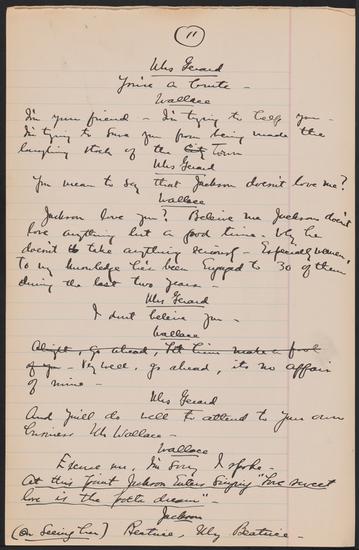 11
Mrs Gerard
You're a brute -
Wallace
I'm your friend - I'm trying to help you -
I'm trying to save you from being made the
laughing stock of the City Town
Mrs Gerard
You mean to say that Jackson doesn't love me?
Wallace
Jackson love you? Believe me Jackson doesn't
love anything but a good time - Why he
doesn't take anything serious - Especially women,
To my knowledge he's been Engaged to 30 of them
during the last two years -
Mrs Gerard
I don't believe you -
Wallace
Alright, go ahead, let him make a fool
of you - Very well, go ahead, its no affair
of mine -
Mrs Gerard
And you'll do well to attend to your own
business Mr Wallace -
Wallace
Excuse me, I'm sorry I spoke -
At this point Jackson Enters Singing "Love sweet
love is the poets dream" -
Jackson
(On Seeing her) Beatrice, My Beatrice -